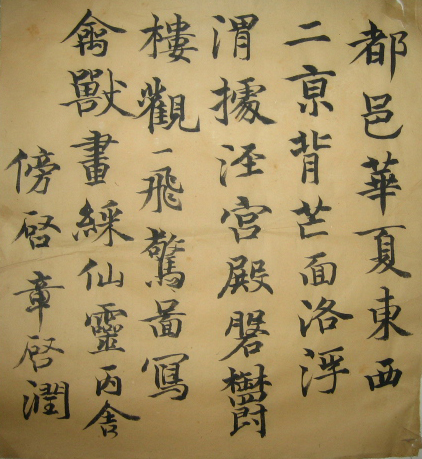 都邑華夏東西
二亰背芒面洛浮
渭據涇宮殿磐欝
樓觀一飛驚啚寫
禽獸畫綵仙靈丙舍
傍啓章啓潤